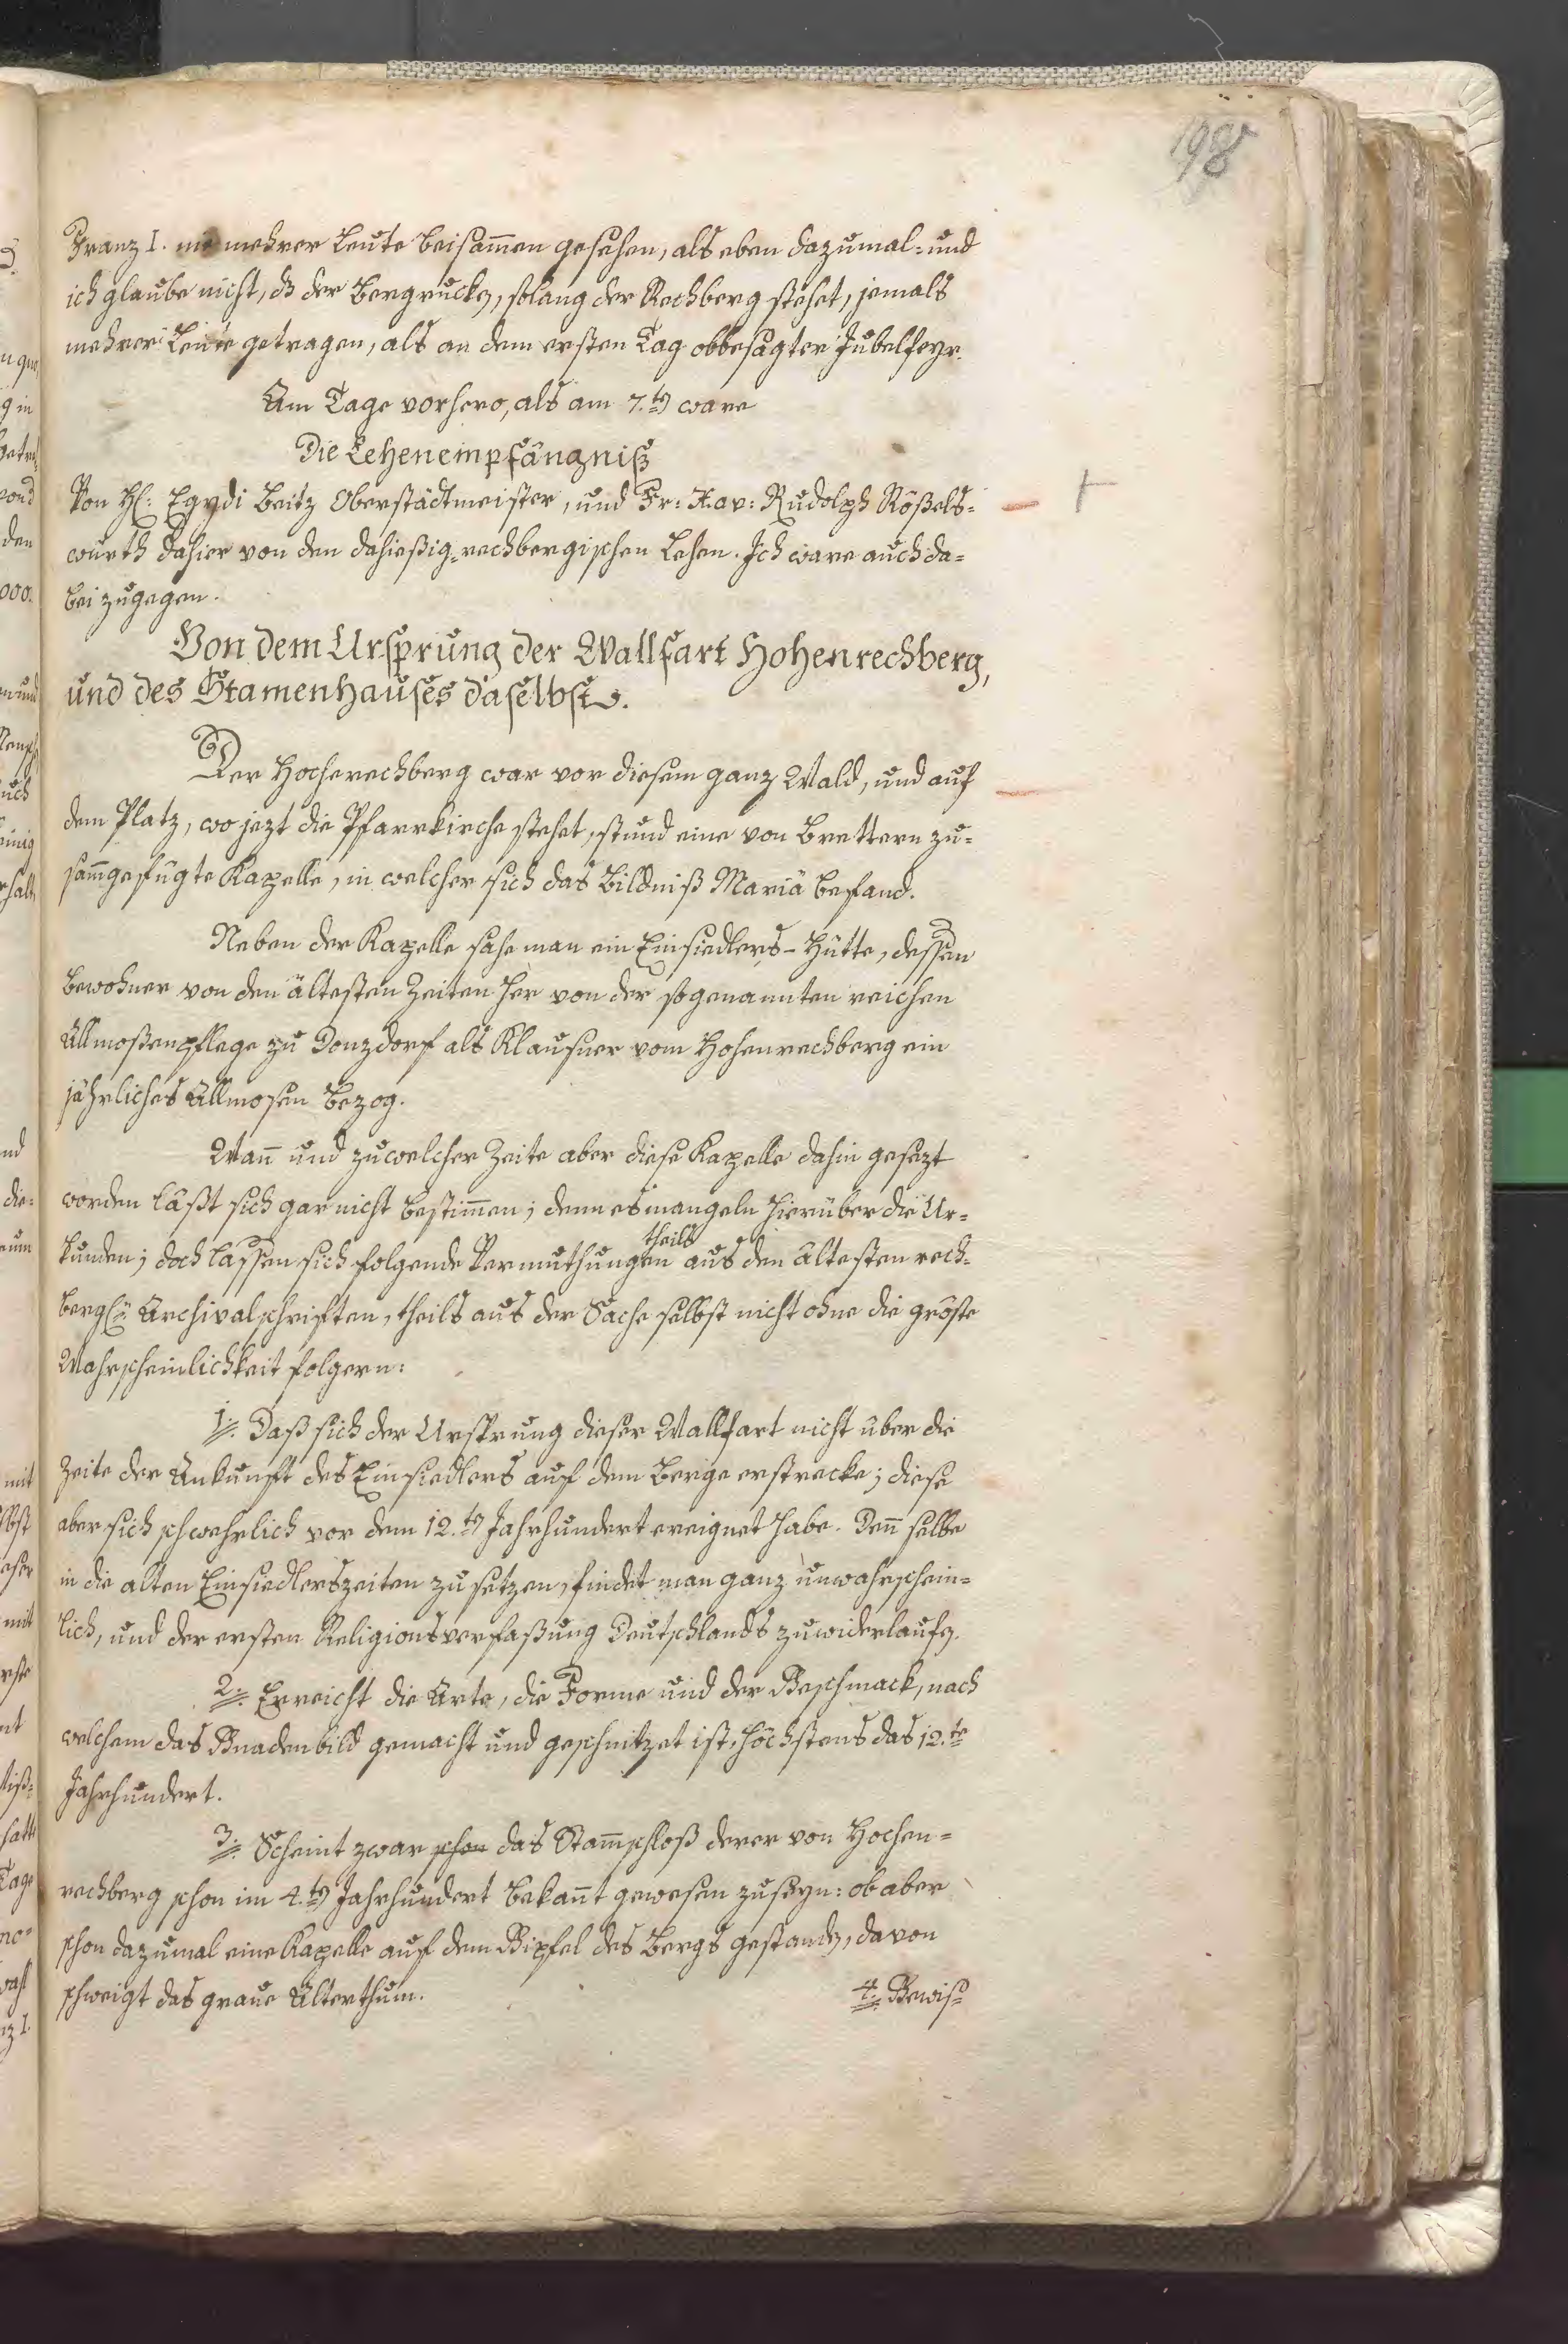 198
Franz I. nie mehrer Leute beisam̄en gesehen, als eben dazumal: und
ich glaube nicht, dß der Bergrucken, solang der Rechberg stehet, jemals
mehrer Leute getragen, als an dem ersten Tag obbesagter Jubelfeyr.
Am Tage vorhero, als am 7.ten ware
Die Lehenempfängniß
Von H: Egydi Beitz Oberstädtmeister, und Fr: Xav: Rudolph Rößels=
würth dahier von den dahießig=rechbergischen Lehen. Ich ware auch da=
bei zugegen.
Von dem Ursprung der Wallfart Hohenrechberg,
und des Stamenhauses daselbst.
Der Hocherechberg war vor diesem ganz Wald, und auf
dem Platz, wo jezt die Pfarrkirche stehet, stund eine von Brettern zu=
sam̄gefügte Kapelle, in welcher sich das Bildniß Mariä befand.
Neben der Kapelle sahe man ein Einsiedlers-Hütte, dessen
Bewohner von den ältesten Zeiten her von der sogenannten reichen
Allmoßenpflege zu Donzdorf als Klausner vom Hohenrechberg ein
jährliches Allmosen bezog.
Wan̄ und zu welcher Zeite aber diese Kapelle dahin gesezt
worden läßt sich gar nicht bestim̄en; denn es mangeln hierüber die Ur=
theils
kunden; doch lassen sich folgende Vermuthungen aus den ältesten rech=
bergl: Archivalschriften, theils aus der Sache selbst nicht ohne die gröste
Wahrscheinlichkeit folgern:
1. Daß sich der Ursprung dieser Wallfart nicht über die
Zeite der Ankunft des Einsiedlers auf dem Berge erstrecke; diese
aber sich schwehrlich vor dem 12.ten Jahrhundert ereignet habe. Den̄ selbe
in die alten Einsiedlerszeiten zu setzen, findet man ganz unwahrschein=
lich, und der ersten Religionsverfaßung Deutschlands zuwiderlaufen.
2. Erreicht die Arte, die Forme und der Geschmack, nach
welchem das Gnadenbild gemacht und geschnitzet ist, höchstens das 12.te
Jahrhundert.
3. Scheint zwar schon das Stam̄schloß derer von Hochen=
rechberg schon im 4.ten Jahrhundert bekan̄t gewesen zu seyn: ob aber
schon dazumal eine Kapelle auf dem Gipfel des Bergs gestanden, davon
schweigt das graue Alterthum.
4. Gewiß